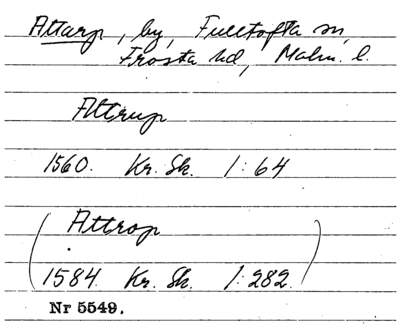 Attarp, by, Fulltofta sn,
Frosta hd, Malm. l.
Attrup
1560. Kr. Sk. 1:64
(Attrop
1584. Kr. Sk. 1:282.)
Nr 5549.